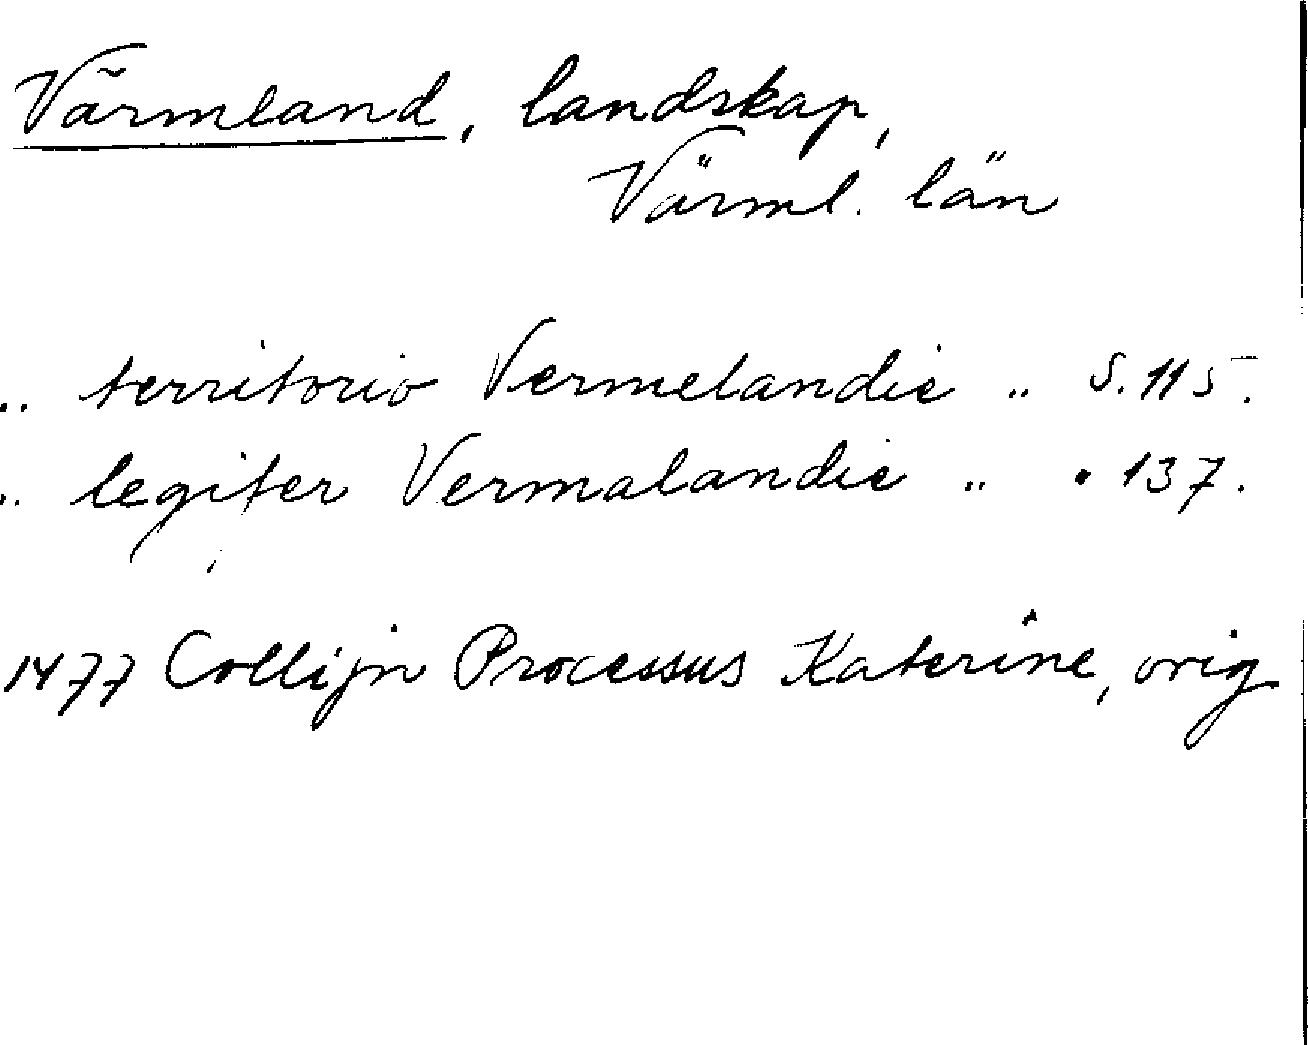 Värmland, landskap,
Värml. län
.. territorio Vermelandie .. S. 115.
.. legifer Vermalandie .. " 137.
1477 Collijn Processus Katerine, orig